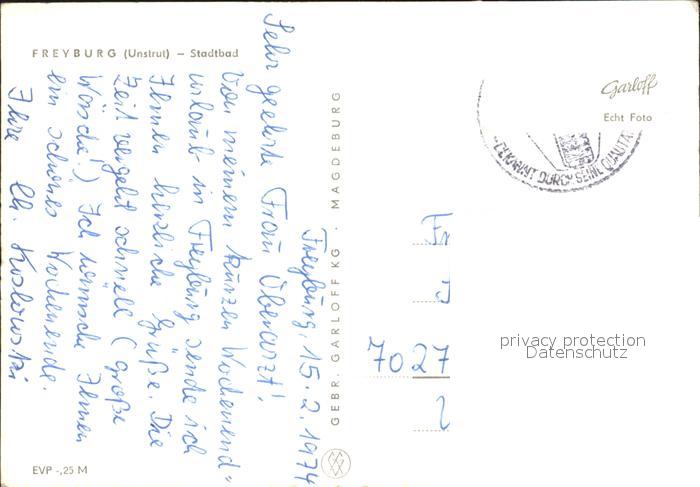 FREYBURG (Unstrut) – Stadtbad
Freyburg, 15.2.1974
Sehr geehrte Frau Oberarzt!
Von meinem kurzen Wochenend-
urlaub in Freyburg sende ich
Ihnen herzliche Grüße. Die
Zeit vergeht schnell (große
Wäsche!) Ich wünsche Ihnen
ein schönes Wochenende.
Ihre Ch. Koslowski
EVP -,25 M
GEBR. GARLOFF KG · MAGDEBURG
Garloff
Echt Foto
BEKANNT DURCH SEINE QUALITÄ
Fr
7027
privacy protection
Datenschutz